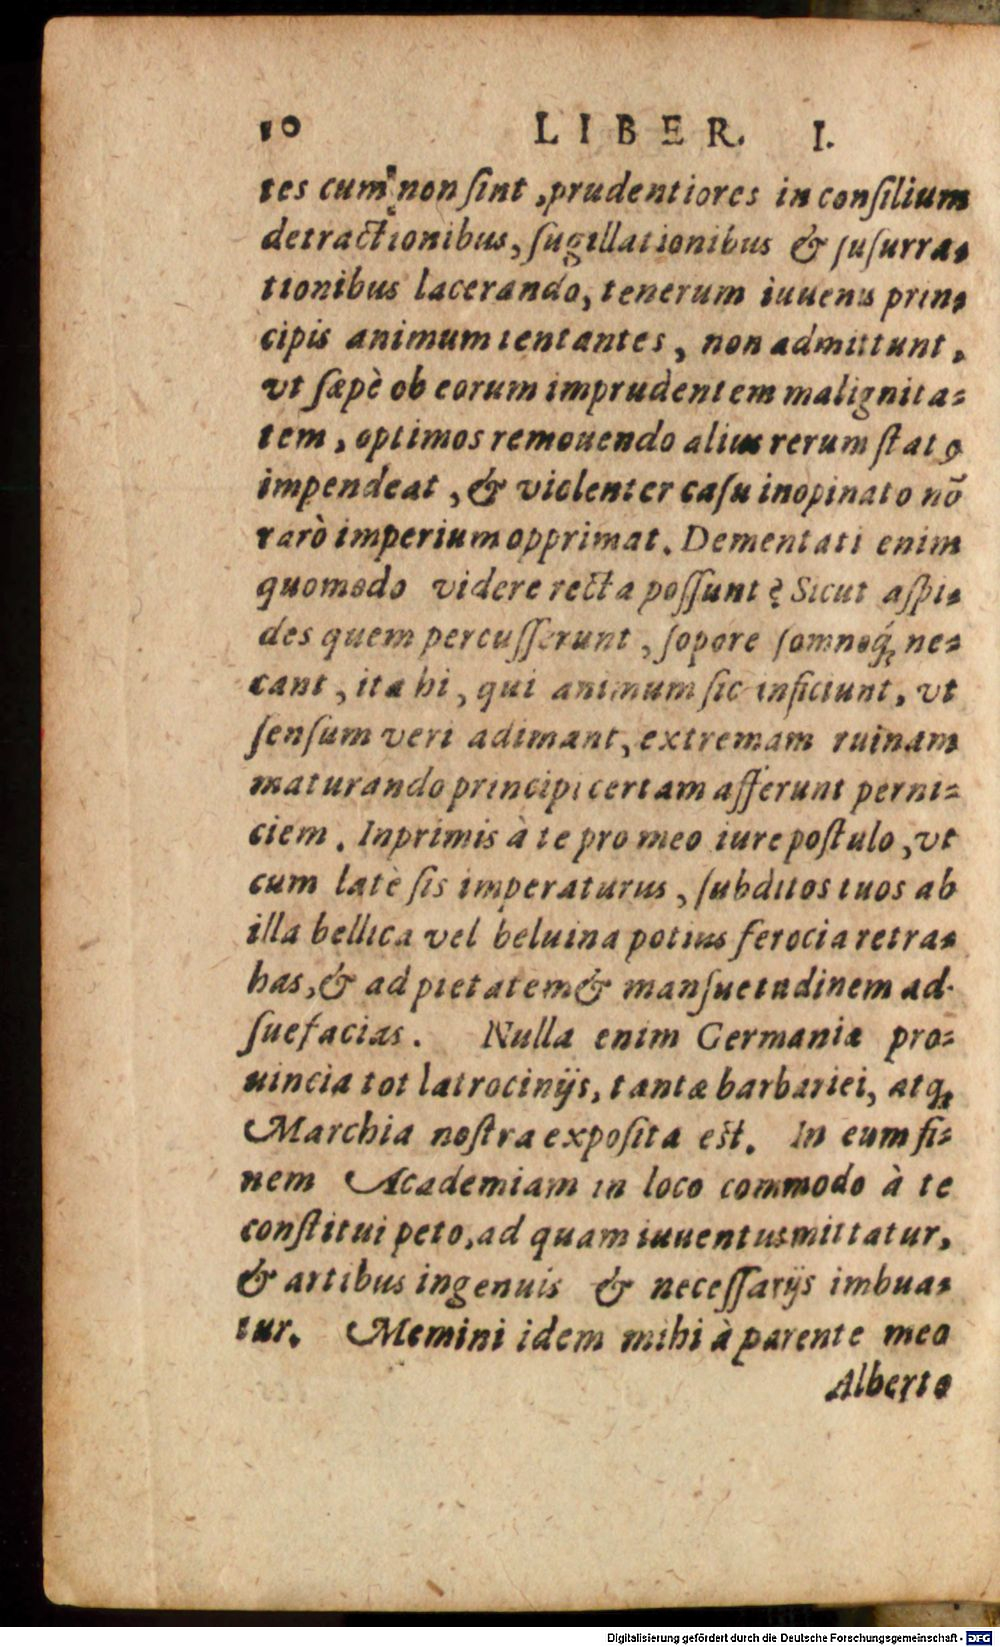 10 LIBER. I.
tes cum non ſint, prudentiores in conſilium
detractionibus, ſugillationibus & ſuſurra-
tionibus lacerando, tenerum iuuenis prin-
cipis animum tentantes, non admittunt,
vt ſæpè ob eorum imprudentem malignita-
tem, optimos remouendo alius rerum ſtatꝰ
impendeat, & violenter caſu inopinato nõ
rarò imperium opprimat. Dementati enim
quomodo videre recta poſſunt? Sicut aſpi-
des quem percuſſerunt, ſopore ſomnoq́; ne-
cant, ita hi, qui animum ſic inficiunt, vt
ſenſum veri adimant, extremam ruinam
maturando principi certam afferunt perni-
ciem. Inprimis à te pro meo iure poſtulo, vt
cum latè ſis imperaturus, ſubditos tuos ab
illa bellica vel beluina potius ferocia retra-
has, & ad pietatem & manſuetudinem ad-
ſuefacias. Nulla enim Germaniæ pro-
uincia tot latrocinijs, tantæ barbariei, atq;
Marchia noſtra expoſita est. In eum fi-
nem Academiam in loco commodo à te
conſtitui peto, ad quam iuuentus mittatur,
& artibus ingenuis & neceſſarijs imbua-
tur. Memini idem mihi à parente meo
Alberto
Digitalisierung gefördert durch die Deutsche Forschungsgemeinschaft - DFG